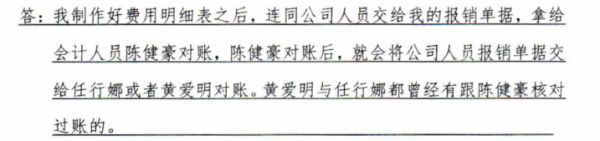 答：我制作好费用明细表之后，连同公司人员交给我的报销单据，拿给
会计人员陈健豪对账，陈健豪对账后，就会将公司人员报销单据交
给任行娜或者黄爱明对账。黄爱明与任行娜都曾经有跟陈健豪核对
过账的。